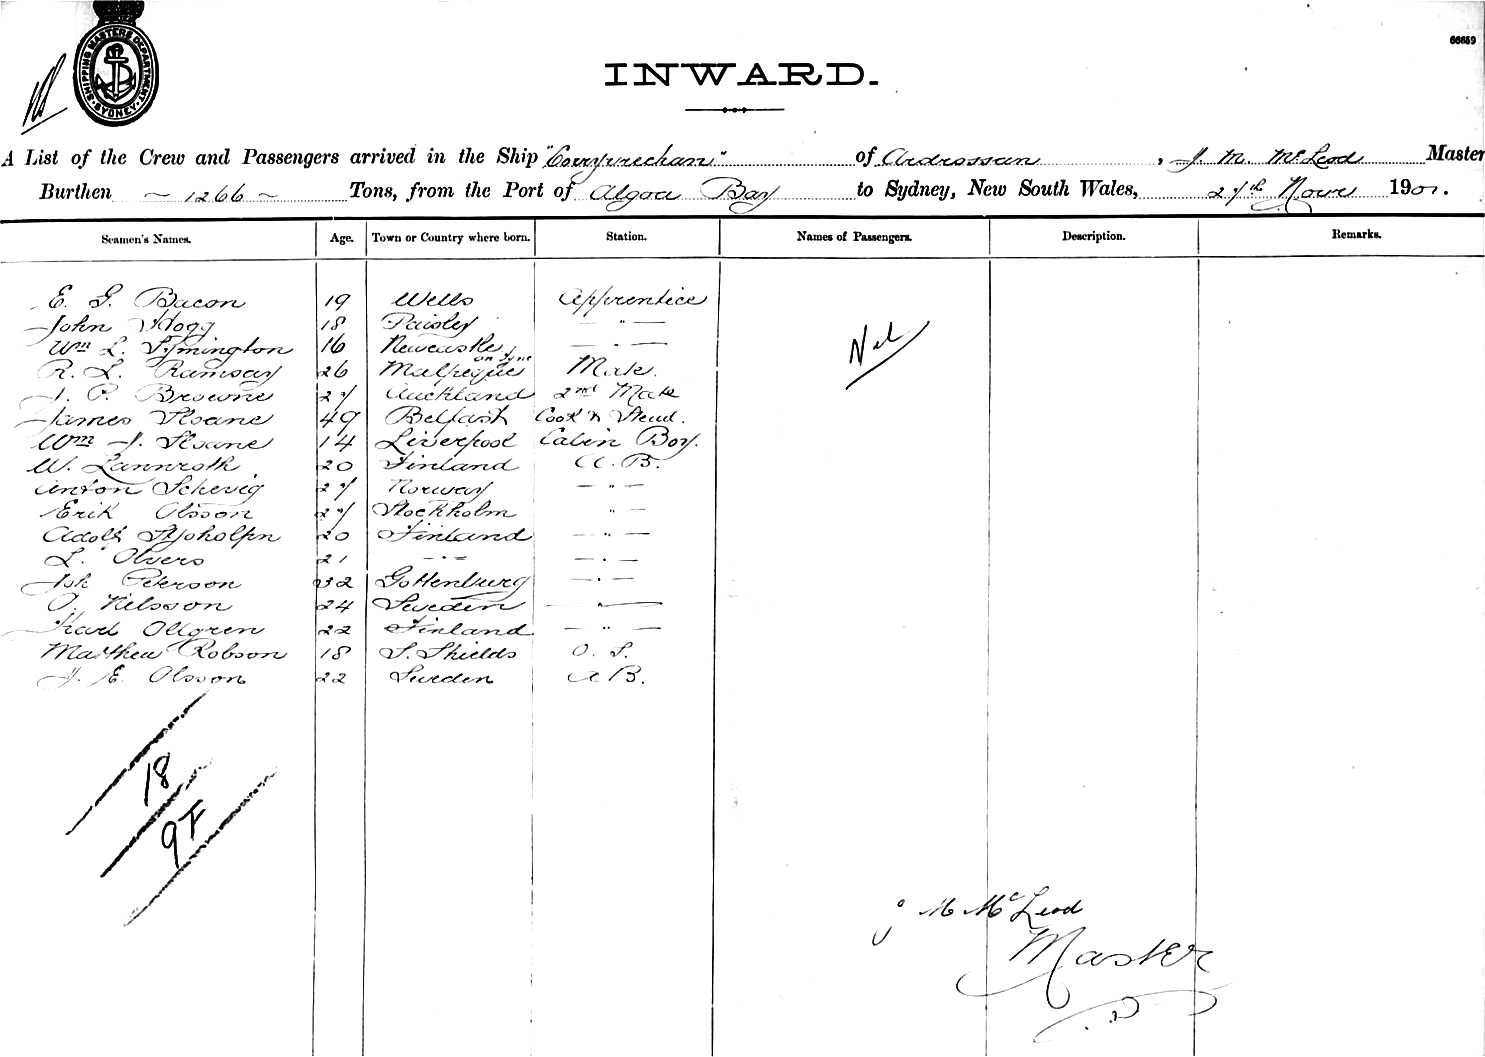 SHIPPING MASTERS DEPARTMENT
SYDNEY
66659
INWARD.
A List of the Crew and Passengers arrived in the Ship "Corryvrechan" of Ardrossan, J. M. McLeod Master
Burthen ~ 1266 ~ Tons, from the Port of Algoa Bay to Sydney, New South Wales, 27th Novr 1901.
Seamen's Names. Age. Town or Country where born. Station. Names of Passengers. Description. Remarks.
E. G. Bacon 19 Wells Apprentice
John Hogg 18 Paisley — " —
Wm L. Symington 16 Newcastle on Tyne — " —
R. L. Ramsay 26 Malpeque Mate.
J. P. Browne 27 Auckland 2nd Mate
James Sloane 49 Belfast Cook & Stewd.
Wm J. Sloane 14 Liverpool Cabin Boy.
W. Lannroth 20 Finland A. B.
Anton Schevig 27 Norway — " —
Erik Olsson 27 Stockholm " —
Adolf 20 Finland — " —
L. Olvers 21 — " — — " —
Joh Peterson 32 Gottenburg — " —
O. Nilsson 24 Sweden — " —
Karl Ollgren 22 Finland — " —
Matthew Robson 18 S. Shields O. S.
J. E. Olsson 22 Sweden A B.
Nil
18
9F
J M McLeod
Master